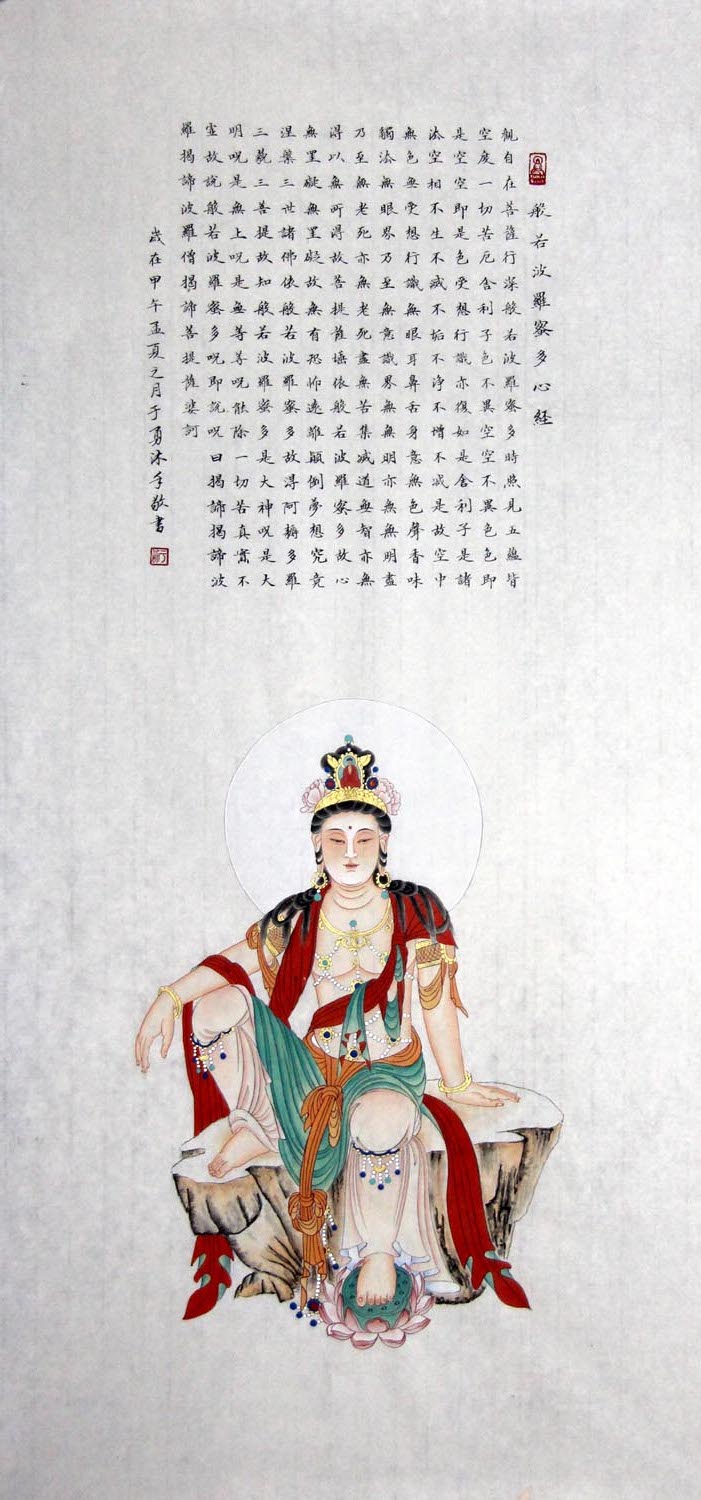 般若波羅蜜多心経
觀自在菩薩行深般若波羅蜜多時照見五蘊皆
空度一切苦厄舍利子色不異空空不異色色即
是空空即是色受想行識亦復如是舍利子是諸
法空相不生不滅不垢不淨不增不減是故空中
無色無受想行識無眼耳鼻舌身意無色聲香味
觸法無眼界乃至無意識界無無明亦無無明盡
乃至無老死亦無老死盡無苦集滅道無智亦無
得以無所得故菩提薩埵依般若波羅蜜多故心
無罣礙無罣礙故無有恐怖遠離顛倒夢想究竟
涅槃三世諸佛依般若波羅蜜多故得阿耨多羅
三藐三菩提故知般若波羅蜜多是大神呪是大
明呪是無上呪是無等等呪能除一切苦真實不
虛故說般若波羅蜜多呪即說呪曰揭諦揭諦波
羅揭諦波羅僧揭諦菩提薩婆訶
歲在甲午孟夏之月于勇沐手敬書